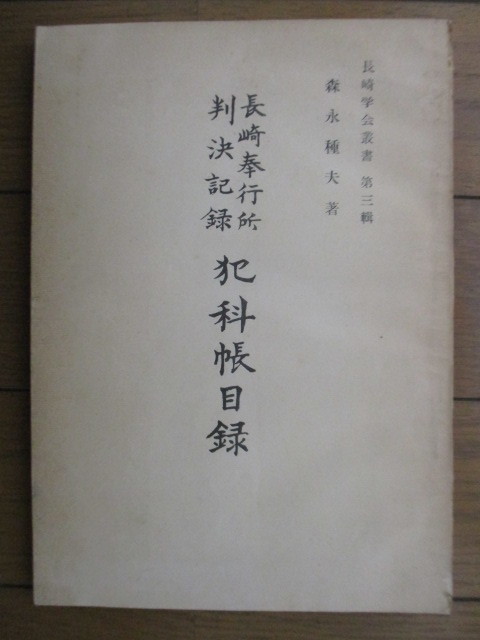 長崎学会叢書 第三輯
森永種夫著
長崎奉行所
判決記録
犯科帳目録